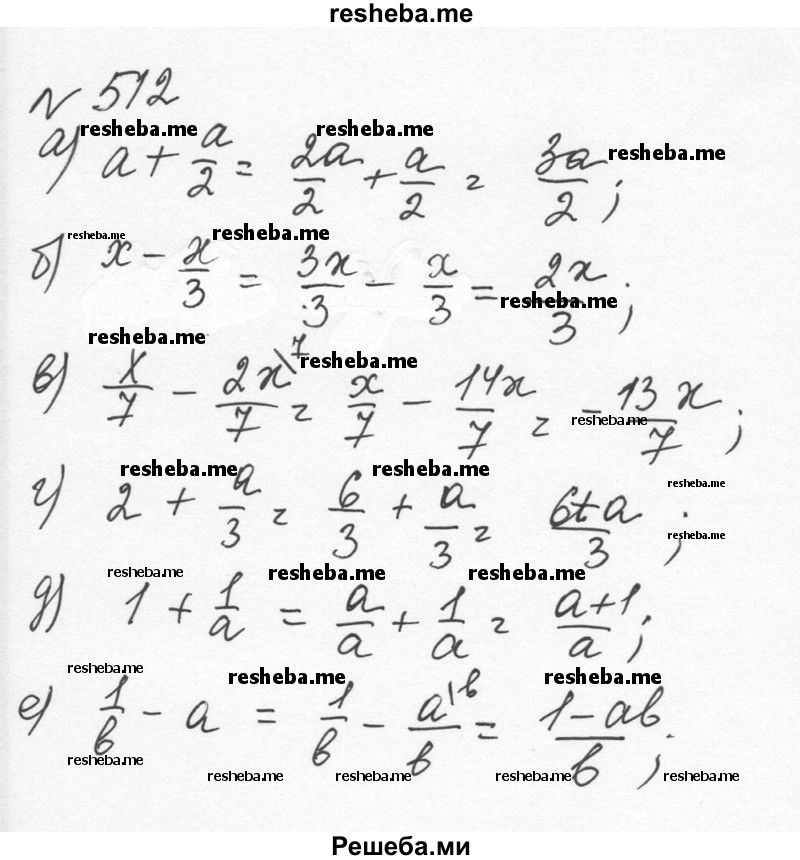 resheba.me
№ 512
resheba.me resheba.me resheba.me
а) a + a/2 = 2a/2 + a/2 = 3a/2 ;
resheba.me resheba.me
б) x - x/3 = 3x/3 - x/3 = 2x/3 ;
resheba.me
resheba.me resheba.me
в) x/7 - 2x\7/7 = x/7 - 14x/7 = -13x/7 ;
resheba.me
resheba.me resheba.me resheba.me
г) 2 + a/3 = 6/3 + a/3 = 6+a/3 ;
resheba.me
resheba.me resheba.me resheba.me
д) 1 + 1/a = a/a + 1/a = a+1/a ;
resheba.me resheba.me resheba.me
е) 1/b - a = 1/b - a\b/b = 1-ab/b ;
resheba.me
resheba.me resheba.me resheba.me resheba.me
Решеба.ми